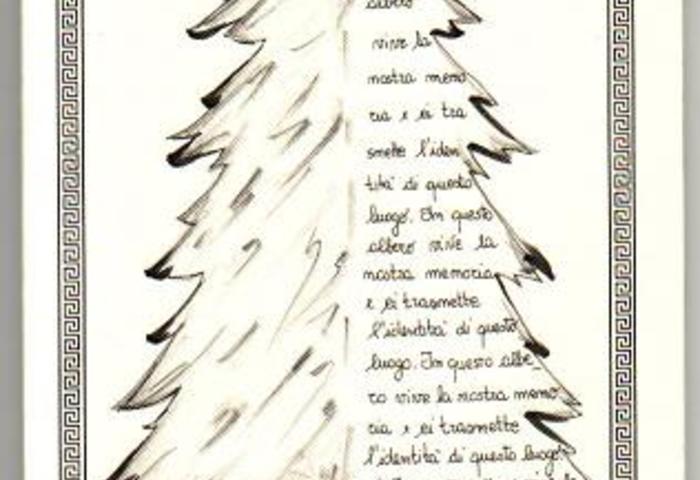 albero
vive la
nostra memo
ria e ci tra
smette l'iden
tità di questo
luogo. In questo
albero vive la
nostra memoria
e ci trasmette
l'identità di questo
luogo. In questo albe_
ro vive la nostra memo
ria e ci trasmette
l'identità di questo luogo.